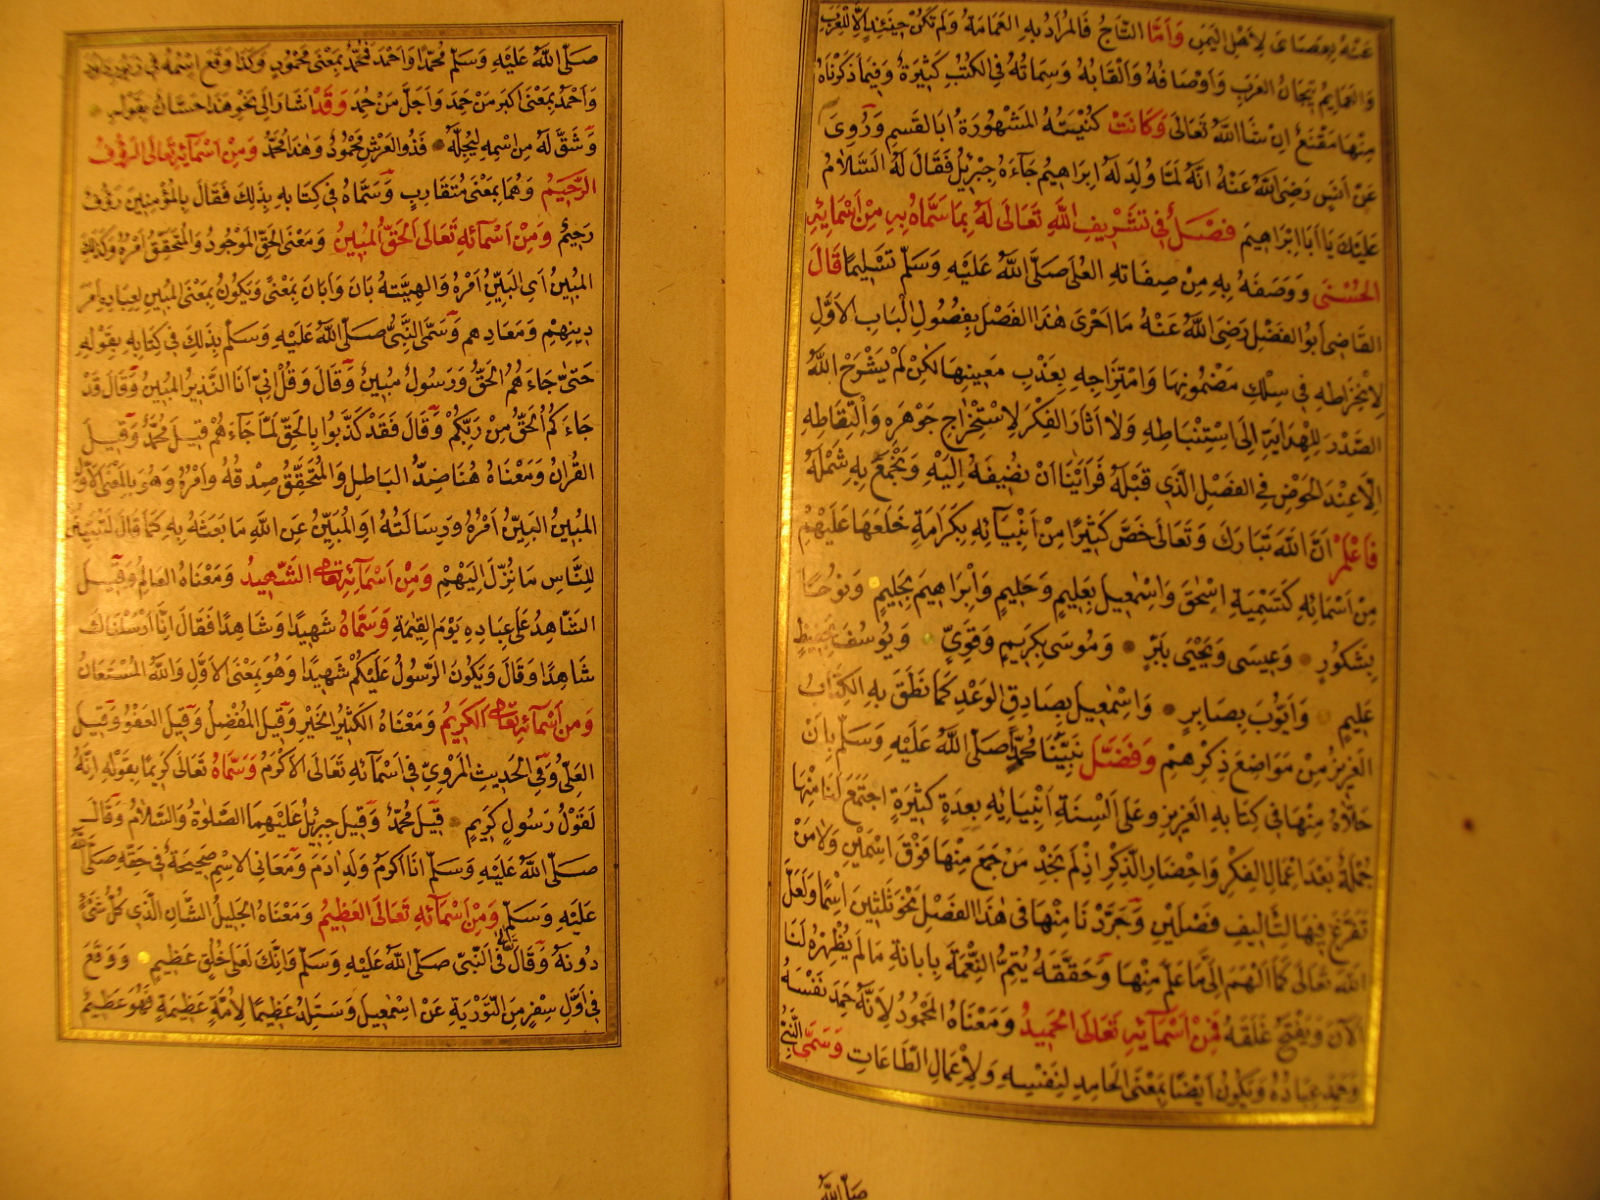 عَنْهُ بِعَصَاىَ لِاَهْلِ الْيَمَنِ وَاَمَّا التَّاجُ فَالْمُرَادُ بِهِ الْعِمَامَةُ وَلَمْ تَكُنْ حِينَئِذٍ اِلَّا لِلْعَرَبِ
وَالْعَمَايِمُ تِيجَانُ الْعَرَبِ وَاَوْصَافُهُ وَاَلْقَابُهُ وَسِمَاتُهُ فِي الْكُتُبِ كَثِيرَةٌ وَفِيمَا ذَكَرْنَاهُ
مِنْهَا مَقْنَعٌ اِنْ شَاءَ اللّٰهُ تَعَالَى وَكَانَتْ كُنْيَتُهُ الْمَشْهُورَةُ اَبَا الْقَسِمِ وَرُوِىَ
عَنْ اَنَسٍ رَضِىَ اللّٰهُ عَنْهُ اَنَّهُ لَمَّا وُلِدَ لَهُ اِبْرَاهِيمُ جَآءَهُ جِبْرِيلُ فَقَالَ لَهُ السَّلَامُ
عَلَيْكَ يَا اَبَا اِبْرَاهِيمَ فَصْلٌ فِي تَشْرِيفِ اللّٰهِ تَعَالَى لَهُ بِمَا سَمَّاهُ بِهِ مِنْ اَسْمَائِهِ
الْحُسْنَى وَوَصَفَهُ بِهِ مِنْ صِفَاتِهِ الْعُلَى صَلَّى اللّٰهُ عَلَيْهِ وَسَلَّمَ تَسْلِيمًا قَالَ
الْقَاضِى اَبُو الْفَضْلِ رَضِىَ اللّٰهُ عَنْهُ مَا اَحْرَى هٰذَا الْفَصْلَ بِفُصُولِ الْبَابِ الْاَوَّلِ
لِانْخِرَاطِهِ فِي سِلْكِ مَضْمُونِهَا وَامْتِزَاجِهِ بِعَذْبِ مَعِينِهَا لٰكِنْ لَمْ يَشْرَحْ اللّٰهُ
الصَّدْرَ لِلْهِدَايَةِ اِلَى اسْتِنْبَاطِهِ وَلَا اَثَارَ الْفِكْرَ لِاسْتِخْرَاجِ جَوْهَرِهِ وَالْتِقَاطِهِ
اِلَّا عِنْدَ الْخَوْضِ فِي الْفَصْلِ الَّذِى قَبْلَهُ فَرَاَيْنَا اَنْ نُضِيفَهُ اِلَيْهِ وَنَجْمَعَ بِهِ شَمْلَهُ
فَاعْلَمْ اَنَّ اللّٰهَ تَبَارَكَ وَتَعَالَى خَصَّ كَثِيرًا مِنْ اَنْبِيَائِهِ بِكَرَامَةٍ خَلَعَهَا عَلَيْهِمْ
مِنْ اَسْمَائِهِ كَتَسْمِيَةِ اِسْحٰقَ وَاِسْمٰعِيلَ بِعَلِيمٍ وَحَلِيمٍ وَاِبْرَاهِيمَ بِحَلِيمٍ وَنُوحًا
بِشَكُورٍ وَعِيسَى وَيَحْيَى بِبَرٍّ وَمُوسَى بِكَرِيمٍ وَقَوِىٍّ وَيُوسُفَ بِحَفِيظٍ
عَلِيمٍ وَاَيُّوبَ بِصَابِرٍ وَاِسْمٰعِيلَ بِصَادِقِ الْوَعْدِ كَمَا نَطَقَ بِهِ الْكِتَابُ
الْعَزِيزُ مِنْ مَوَاضِعِ ذِكْرِهِمْ وَفَضَّلَ نَبِيَّنَا مُحَمَّدًا صَلَّى اللّٰهُ عَلَيْهِ وَسَلَّمَ بِاَنْ
حَلَّاهُ مِنْهَا فِي كِتَابِهِ الْعَزِيزِ وَعَلَى اَلْسِنَةِ اَنْبِيَائِهِ بِعِدَةٍ كَثِيرَةٍ اجْتَمَعَ لَنَا مِنْهَا
جُمْلَةٌ بَعْدَ اِعْمَالِ الْفِكْرِ وَاِحْضَارِ الذِّكْرِ اِذْ لَمْ نَجِدْ مَنْ جَمَعَ مِنْهَا فَوْقَ اسْمَيْنِ وَلَا مَنْ
تَفَرَّغَ فِيهَا لِتَأْلِيفِ فَصْلَيْنِ وَجَرَّدْنَا مِنْهَا فِي هٰذَا الْفَصْلِ نَحْوَ ثَلٰثِينَ اسْمًا وَلَعَلَّ
اللّٰهَ تَعَالَى كَمَا اَلْهَمَ اِلَى مَا عَلَّمَ مِنْهَا وَحَقَّقَهُ يُتِمُّ النِّعْمَةَ بِاِبَانَةِ مَا لَمْ يُظْهِرْهُ لَنَا
الْاٰنَ وَيَفْتَحُ غَلَقَهُ فَمِنْ اَسْمَائِهِ تَعَالَى الْحَمِيدُ وَمَعْنَاهُ الْمَحْمُودُ لِاَنَّهُ حَمِدَ نَفْسَهُ
وَحَمِدَهُ عِبَادُهُ وَيَكُونُ اَيْضًا بِمَعْنَى الْحَامِدِ لِنَفْسِهِ وَلِاَعْمَالِ الطَّاعَاتِ وَسَمَّى النَّبِىَّ
صَلَّى اللّٰهُ
صَلَّى اللّٰهُ عَلَيْهِ وَسَلَّمَ مُحَمَّدًا وَاَحْمَدَ فَمُحَمَّدٌ بِمَعْنَى مَحْمُودٍ وَكَذَا وَقَعَ اسْمُهُ فِي زُبُرِ دَاوُدَ
وَاَحْمَدُ بِمَعْنَى اَكْبَرِ مَنْ حَمِدَ وَاَجَلِّ مَنْ حُمِدَ وَقَدْ اَشَارَ اِلَى نَحْوِ هٰذَا حَسَّانُ بِقَوْلِهِ
وَشَقَّ لَهُ مِنْ اسْمِهِ لِيُجِلَّهُ فَذُو الْعَرْشِ مَحْمُودٌ وَهٰذَا مُحَمَّدُ وَمِنْ اَسْمَآئِهِ تَعَالَى الرَّؤُفُ
الرَّحِيمُ وَهُمَا بِمَعْنَى مُتَقَارِبٍ وَسَمَّاهُ فِي كِتَابِهِ بِذٰلِكَ فَقَالَ بِالْمُؤْمِنِينَ رَؤُفٌ
رَحِيمٌ وَمِنْ اَسْمَائِهِ تَعَالَى الْحَقُّ الْمُبِينُ وَمَعْنَى الْحَقِّ الْمَوْجُودُ وَالْمُتَحَقِّقُ اَمْرُهُ وَكَذٰلِكَ
الْمُبِينُ اَىِ الْبَيِّنُ اَمْرُهُ وَاِلٰهِيَّتُهُ بَانَ وَاَبَانَ بِمَعْنًى وَيَكُونُ بِمَعْنَى الْمُبِينِ لِعِبَادِهِ اَمْرَ
دِينِهِمْ وَمَعَادِهِمْ وَسَمَّى النَّبِىَّ صَلَّى اللّٰهُ عَلَيْهِ وَسَلَّمَ بِذٰلِكَ فِي كِتَابِهِ بِقَوْلِهِ
حَتّٰى جَاءَهُمُ الْحَقُّ وَرَسُولٌ مُبِينٌ وَقَالَ وَقُلْ اِنِّى اَنَا النَّذِيرُ الْمُبِينُ وَقَالَ قَدْ
جَاءَكُمُ الْحَقُّ مِنْ رَبِّكُمْ وَقَالَ فَقَدْ كَذَّبُوا بِالْحَقِّ لَمَّا جَآءَهُمْ قِيلَ مُحَمَّدٌ وَقِيلَ
الْقُرْاٰنُ وَمَعْنَاهُ هُنَا ضِدُّ الْبَاطِلِ وَالْمُتَحَقِّقُ صِدْقُهُ وَاَمْرُهُ وَهُوَ بِالْمَعْنَى الْاَوَّلِ
الْمُبِينُ الْبَيِّنُ اَمْرُهُ وَرِسَالَتُهُ اَوِ الْمُبَيِّنُ عَنِ اللّٰهِ مَا بَعَثَهُ بِهِ كَمَا قَالَ لِتُبَيِّنَ
لِلنَّاسِ مَا نُزِّلَ اِلَيْهِمْ وَمِنْ اَسْمَآئِهِ تعا الشَّهِيدُ وَمَعْنَاهُ الْعَالِمُ وَقِيلَ
الشَّاهِدُ عَلَى عِبَادِهِ يَوْمَ الْقِيٰمَةِ وَسَمَّاهُ شَهِيدًا وَشَاهِدًا فَقَالَ اِنَّا اَرْسَلْنَاكَ
شَاهِدًا وَقَالَ وَيَكُونَ الرَّسُولُ عَلَيْكُمْ شَهِيدًا وَهُوَ بِمَعْنَى الْاَوَّلِ وَاللّٰهُ الْمُسْتَعَانُ
وَمِنْ اَسْمَآئِهِ تعا الْكَرِيمُ وَمَعْنَاهُ الْكَثِيرُ الْخَيْرِ وَقِيلَ الْمُفْضِلُ وَقِيلَ الْعَفُوُّ وَقِيلَ
الْعَلِىُّ وَفِي الْحَدِيثِ الْمَرْوِىِّ فِي اَسْمَائِهِ تَعَالَى الْاَكْرَمُ وَسَمَّاهُ تَعَالَى كَرِيمًا بِقَوْلِهِ اِنَّهُ
لَقَوْلُ رَسُولٍ كَرِيمٍ قِيلَ مُحَمَّدٌ وَقِيلَ جِبْرِيلُ عَلَيْهِمَا الصَّلٰوةُ وَالسَّلَامُ وَقَالَ
صَلَّى اللّٰهُ عَلَيْهِ وَسَلَّمَ اَنَا اَكْرَمُ وَلَدِ اٰدَمَ وَمَعَانِى الْاِسْمِ صَحِيحَةٌ فِي حَقِّهِ صَلَّى اللّٰهُ
عَلَيْهِ وَسَلَّمَ وَمِنْ اَسْمَآئِهِ تَعَالَى الْعَظِيمُ وَمَعْنَاهُ الْجَلِيلُ الشَّانِ الَّذِى كُلُّ شَىْءٍ
دُونَهُ وَقَالَ فِي النَّبِىِّ صَلَّى اللّٰهُ عَلَيْهِ وَسَلَّمَ وَاِنَّكَ لَعَلَى خُلُقٍ عَظِيمٍ وَوَقَعَ
فِي اَوَّلِ سِفْرٍ مِنَ التَّوْرٰيةِ عَنْ اِسْمٰعِيلَ وَسَتَلِدُ عَظِيمًا لِاُمَّةٍ عَظِيمَةٍ فَهُوَ عَظِيمٌ